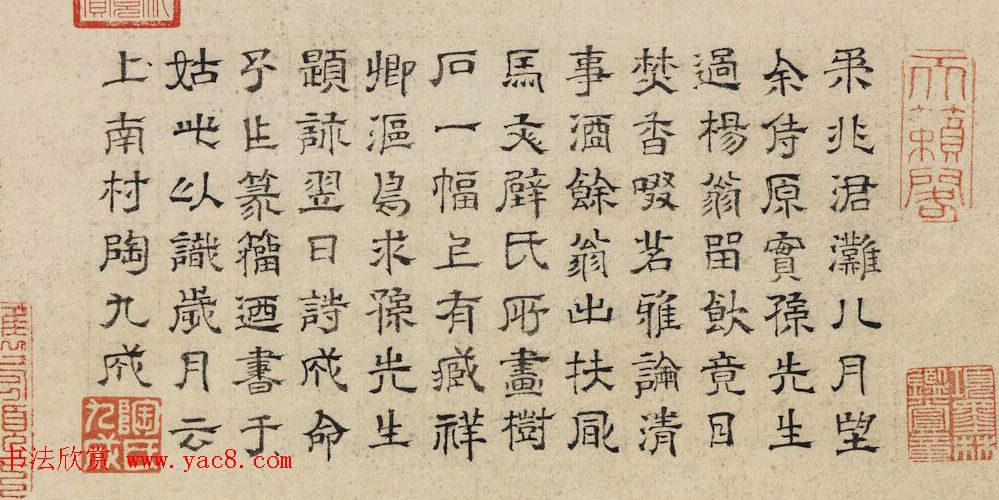 天籟閣
柔兆涒灘八月望
余侍原實孫先生
過楊翁留飲竟日
焚香啜茗雅論清
事酒餘翁出扶風
馬文璧氏所畫樹
石一幅上有臧祥
卿漚求孫先生
題詠翌日詩成命
予作篆籀迺書于
姑此以識歲月云
上南村陶九成
陶氏九成
项墨林鑑賞章
书法欣赏 www.yac8.com